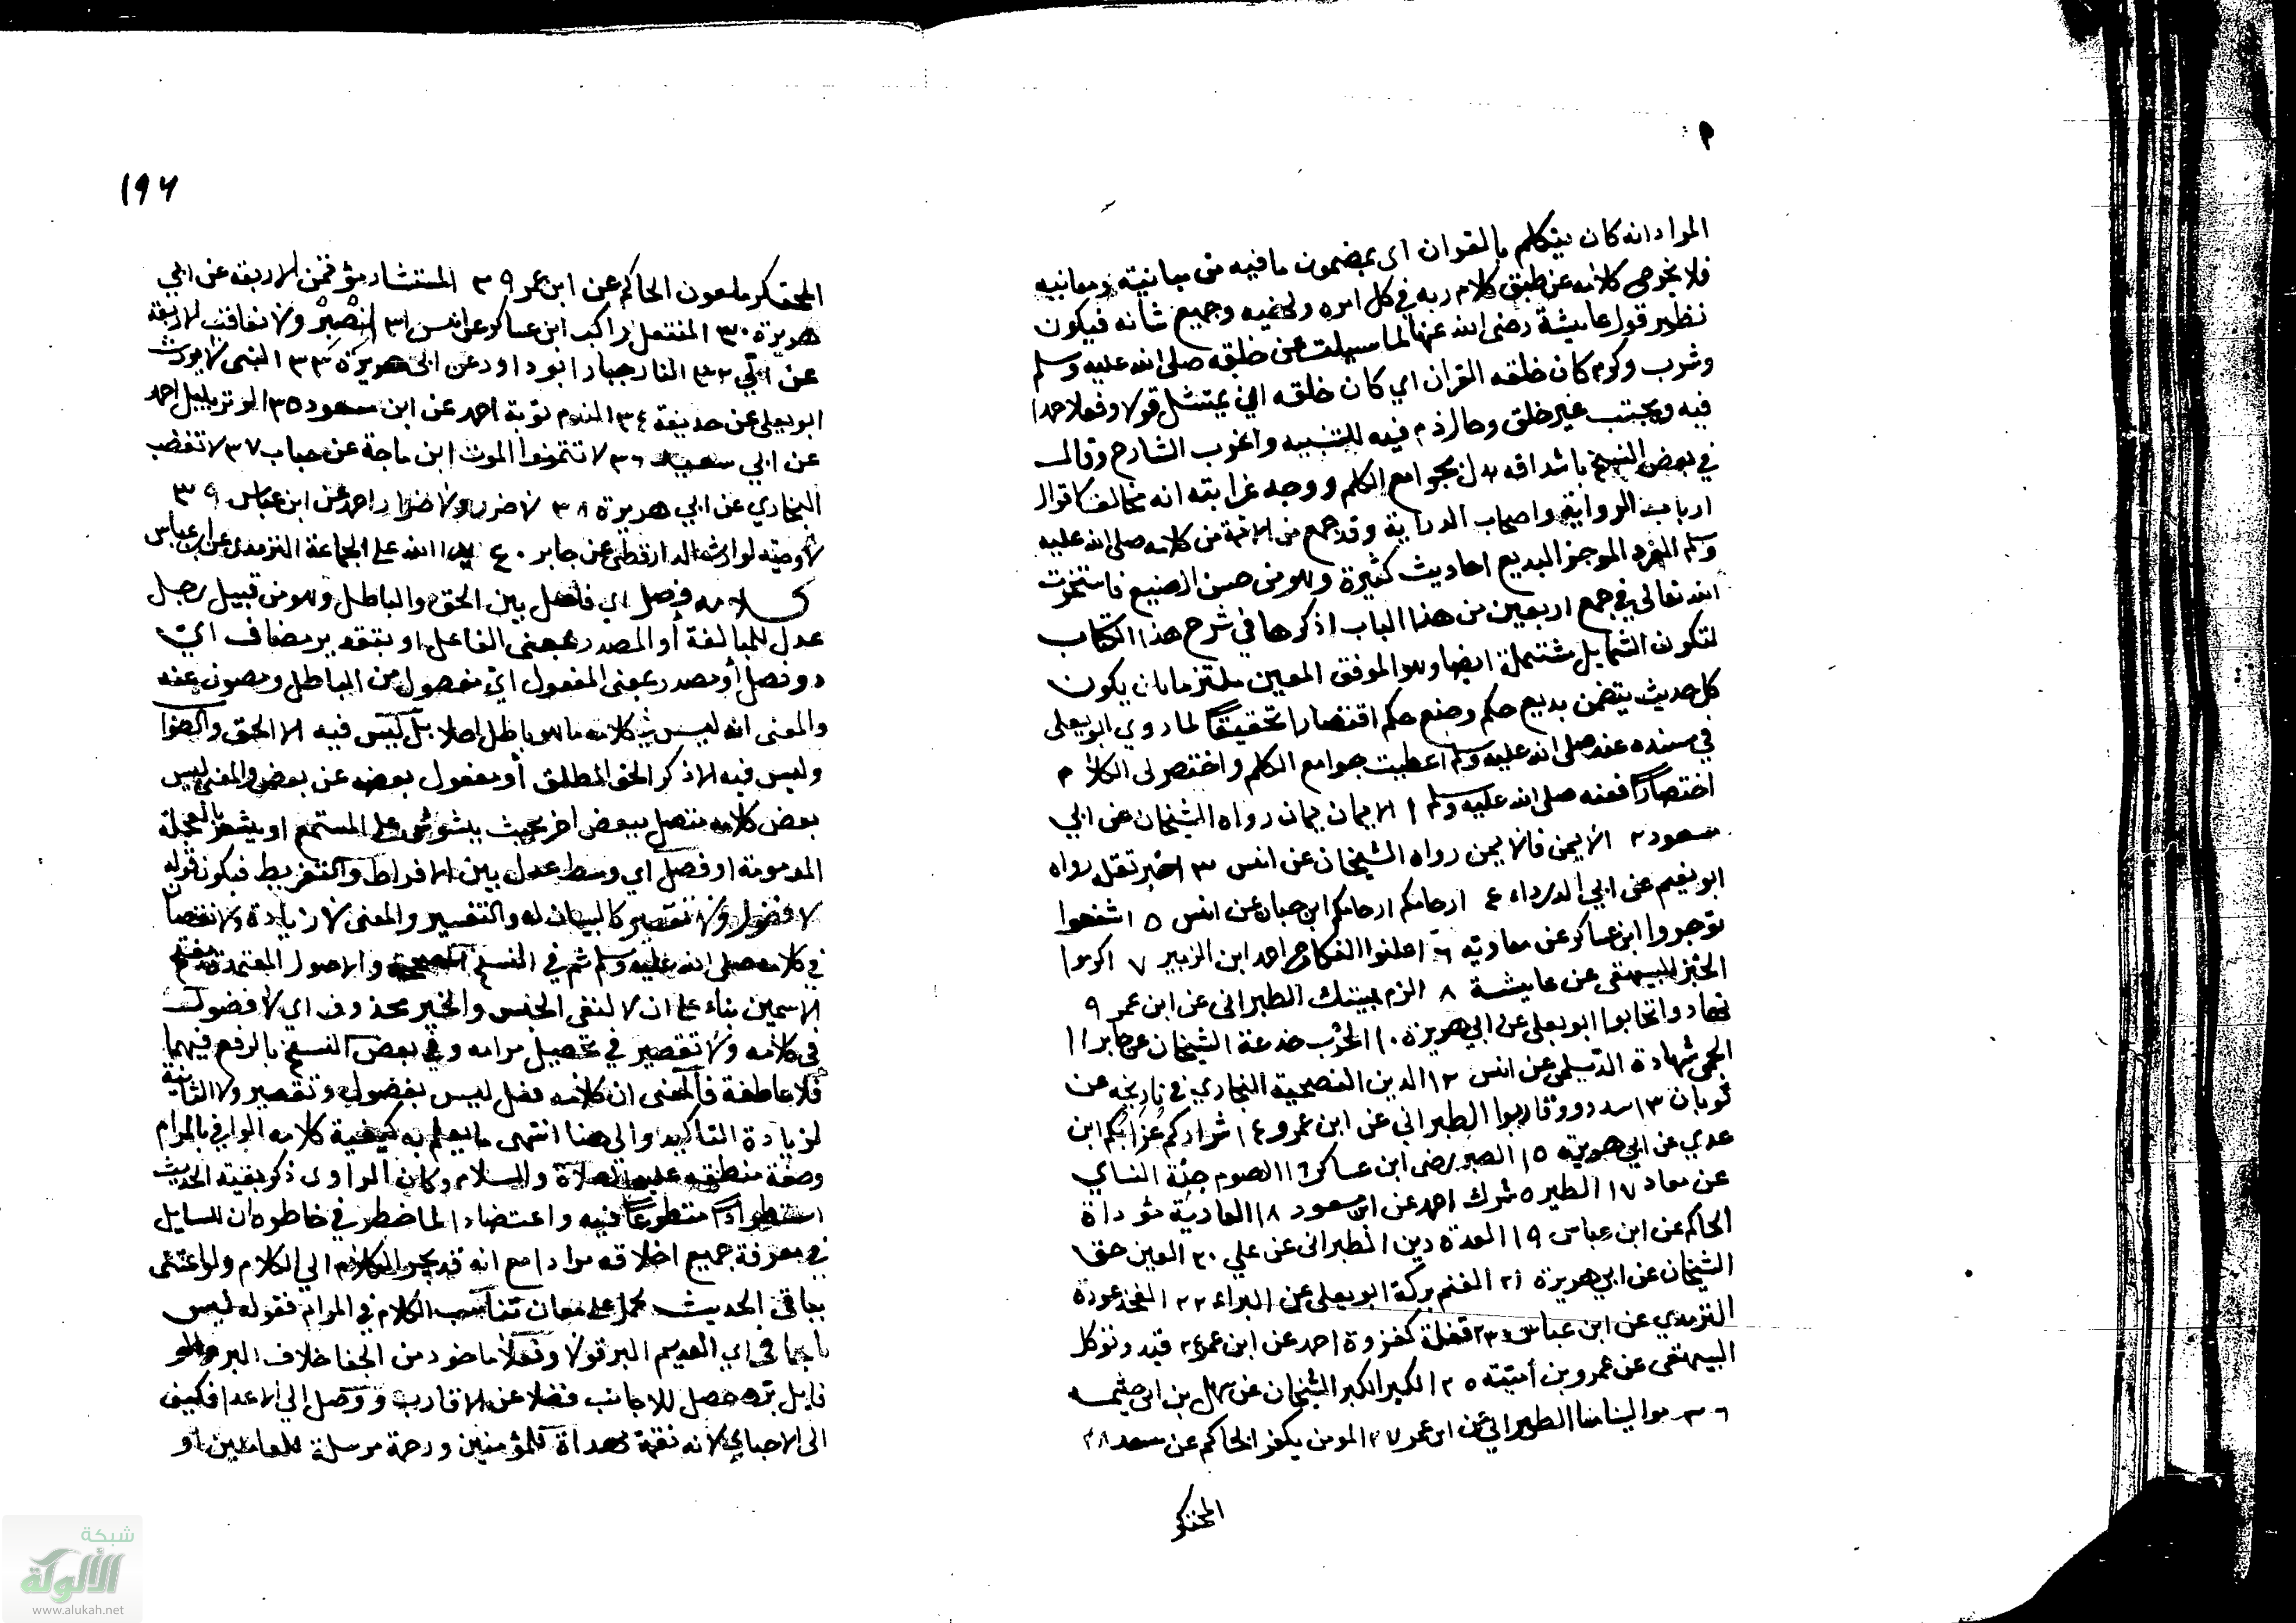 المراد انه كان يتكلم بالقران اي بمضمون ما فيه من مبانيه ومعانيه
فلا يخرج كلامه عن طبق كلام ربه في كل امره ونهيه وجميع شانه فيكون
نظير قول عايشة رضى الله عنها لما سيلت عن خلقه صلى الله عليه وسلم
وشرب وكرم كان خلقه القران اي كان خلقه ان يمتثل قولا وفعلا
فيه ويجتنب غير خلق وحال ذم فيه للتنبيه واغرب الشارح وقال
في بعض النسخ باشداقه بدل بجوامع الكلم ووجه غرابته انه مخالف لاقوال
ارباب الرواية واصحاب الدراية وقد جمع من الائمة من كلامه صلى الله عليه
وسلم المفرد الموجز البديع احاديث كثيرة وهو من حسن الصنيع فاستخرت
الله تعالى في جمع اربعين من هذا الباب اذكرها في شرح هذا الكتاب
لتكون الشمايل مشتملة ايضا وهو الموفق المعين ملتزما بان يكون
كل حديث يتضمن بديع حكم وصنع حكم اقتصارا تحقيقا لما روي ابو يعلى
في مسنده عنه صلى الله عليه وسلم اعطيت جوامع الكلم واختصر لى الكلام
اختصارا فعنه صلى الله عليه وسلم ١ الايمان يمان رواه الشيخان عن ابي
مسعود ٢ الايمن فالايمن رواه الشيخان عن انس ٣ اخبر تقله رواه
ابو نعيم عن ابي الدرداء ٤ ارحامكم ارحامكم ابن حبان عن انس ٥ اشفعوا
توجروا ابن عساكر عن معاوية ٦ اعلنوا النكاح احمد ابن الزبير ٧ اكرموا
الخبز البيهقى عن عايشة ٨ الزم بيتك الطبرانى عن ابن عمر ٩
تهادوا تحابوا ابو يعلى عن ابي هريرة ١٠ الحرب خدعة الشيخان عن جابر ١١
الحمى شهادة الديلمى عن انس ١٢ الدين النصيحة البخاري في تاريخه عن
ثوبان ١٣ سددوا وقاربوا الطبراني عن ابن عمرو ١٤ شراركم عزابكم ابن
عدي عن ابي هريرة ١٥ الصبر رضى ابن عساكر ١٦ الصوم جنة النساي
عن معاذ ١٧ الطيرة شرك احمد عن ابن مسعود ١٨ العارية مؤداة
الحاكم عن ابن عباس ١٩ العدة دين الطبرانى عن علي ٢٠ العين حق
الشيخان عن ابي هريرة ٢١ الغنم بركة ابو يعلى عن البراء ٢٢ الفخذ عورة
الترمذي عن ابن عباس ٢٣ قفلة كغزوة احمد عن ابن عمرو ٢٤ قيد وتوكل
البيهقى عن عمرو بن أمية ٢٥ الكبر الكبر الشيخان عن سهل بن ابى حثمه
٢٦ موالينا منا الطبراني عن ابن عمر ٢٧ المومن يكفر الحاكم عن سعد ٢٨
المحتكر
١٩٦
المحتكر ملعون الحاكم عن ابن عمر ٢٩ المستشار مؤتمن الاربعة عن ابي
هريرة ٣٠ المنتعل راكب ابن عساكر عن انس ٣١ النصبر ولا نعاقب
عن ابي ٣٢ النار جبار ابو داود عن ابى هريرة ٣٣ النبى لا يورث
ابو يعلى عن حذيفة ٣٤ الندم توبة احمد عن ابن مسعود ٣٥ الوتر بليل احمد
عن ابي سعيد ٣٦ لا تتمنوا الموت ابن ماجة عن خباب ٣٧ لا تغضب
البخاري عن ابي هريرة ٣٨ لا ضرر ولا ضرار احمد عن ابن عباس ٣٩
لا وصية لوارث الدارقطنى عن جابر ٤٠ يد الله على الجماعة الترمذى عن ابن عباس
كلامه فصل اي فاصل بين الحق والباطل وهو من قبيل رجل
عدل للمبالغة أو المصدر بمعنى الفاعل او بتقدير مضاف اي
ذو فصل أو مصدر بمعنى المفعول اي مفصول من الباطل ومصون عنه
والمعنى انه ليس في كلامه ما هو باطل اصلا بل ليس فيه الا الحق والصواب
وليس فيه الا ذكر الحق المطلق أو مفعول بعضه عن بعض والمعنى ليس
بعض كلامه متصل ببعض اخر بحيث يشوش على المستمع او يشعر بالعجلة
المذمومة او فصل اي وسط عدل بين الافراط والتفريط فيكون قوله
لا فضول ولا تقصير كالبيان له والتفسير والمعنى لا زيادة ولا نقصان
في كلامه صلى الله عليه وسلم ثم في النسخ المصححة والاصول المعتمدة بفتح
الاسمين بناء على ان لا لنفي الجنس والخبر محذوف اي لا فضول
في كلامه ولا تقصير في تحصيل مرامه وفي بعض النسخ بالرفع فيهما
فلا عاطفة فالمعنى ان كلامه فصل ليس بفضول وتقصير ولا الثانية
لزيادة التاكيد والى هنا انتهى ما يعلم به كيفية كلامه الوافي بالمرام
وصفة منطقه عليه الصلاة والسلام وكان الراوى ذكر بقية الحديث
استطرادا متطوعا فيه واعتضادا لما خطر في خاطره ان للسايل
في معرفة جميع اخلاقه مرادا مع انه قد يجر الكلام الي الكلام ولو اعتنى
بباقى الحديث يحمل على معان تناسب الكلام في المرام فقوله ليس
بالجافى اي العديم البر قولا وفعلا ماخوذ من الجفا خلاف البر وهو
فايل بره حصل للاجانب فضلا عن الاقارب ووصل الى الاعدا فكيف
الى الاحباب لانه نعمة مهداة للمؤمنين ورحمة مرسلة للعالمين او
شبكة
الألوكة
www.alukah.net